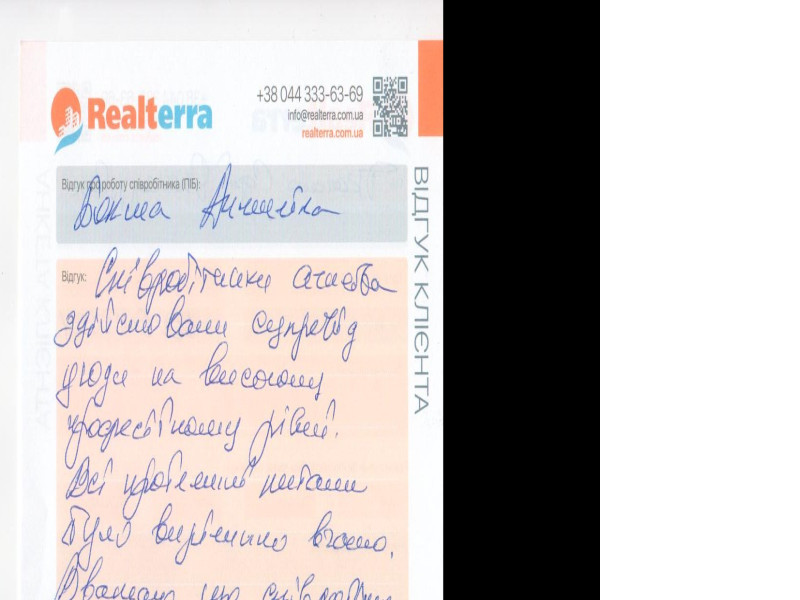 Realterra
+38 044 333-63-69
info@realterra.com.ua
realterra.com.ua
Відгук про роботу співробітника (ПІБ):
ВІДГУК КЛІЄНТА
Відгук:
Співробітники
здійснювали супровід
угоди на високому
професійному рівні.
Всі проблемні питання
було вирішено вчасно.
що